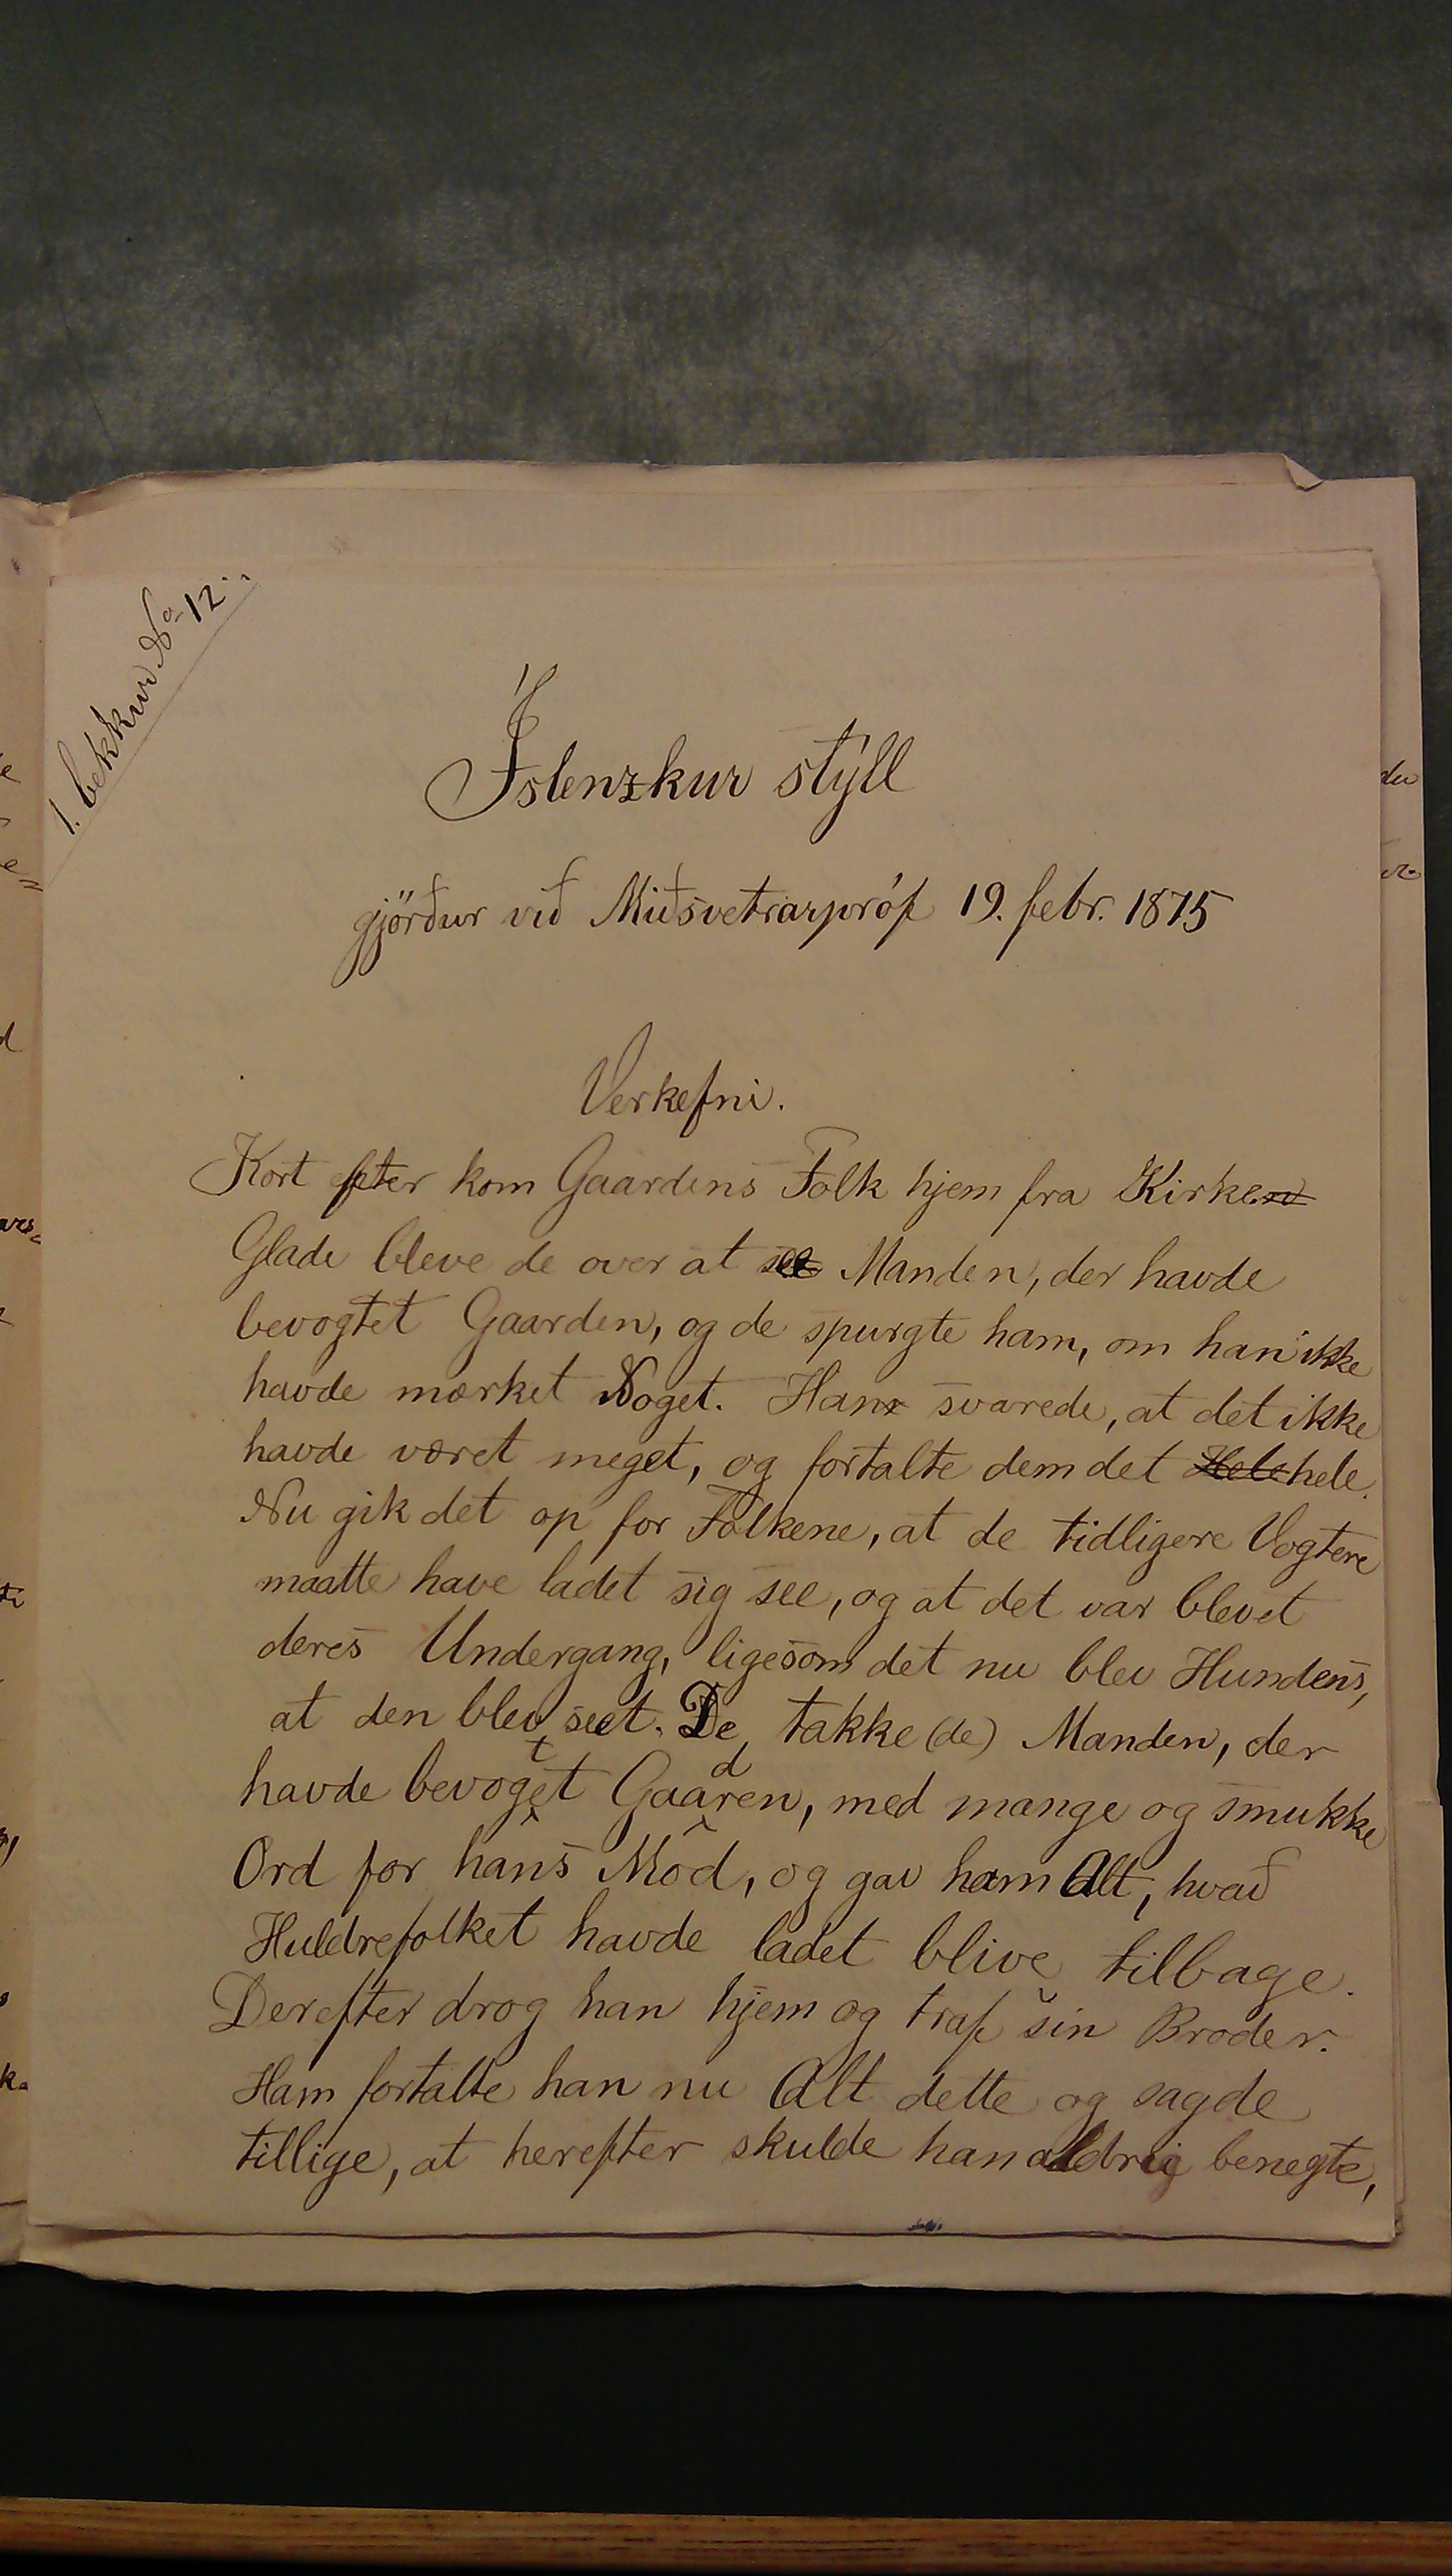 1. bekkur No 12.
Íslenzkur stýll
gjörður við Miðsvetrarpróf 19. febr. 1875
Verkefni.
Kort efter kom Gaardens Folk hjem fra Kirken
Glade bleve de over at see Manden, der havde
bevogtet Gaarden, og de spurgte ham, om han ikke
havde mærket Noget. Han svarede, at det ikke
havde været meget, og fortalte dem det Hele hele.
Nu gik det op for Folkene, at de tidligere Vogtere
maatte have ladet sig see, og at det var blevet
deres Undergang, ligesom det nu blev Hundens,
at den blev seet. De takke (de) Manden, der
havde bevogtet Gaarden, med mange og smukke
Ord for hans Mod, og gav ham Alt, hvað
Huldrefolket havde ladet blive tilbage.
Derefter drog han hjem og traf sin Broder.
Ham fortalte han nu Alt dette og sagde
tillige, at herefter skulde han aldrig benegte,